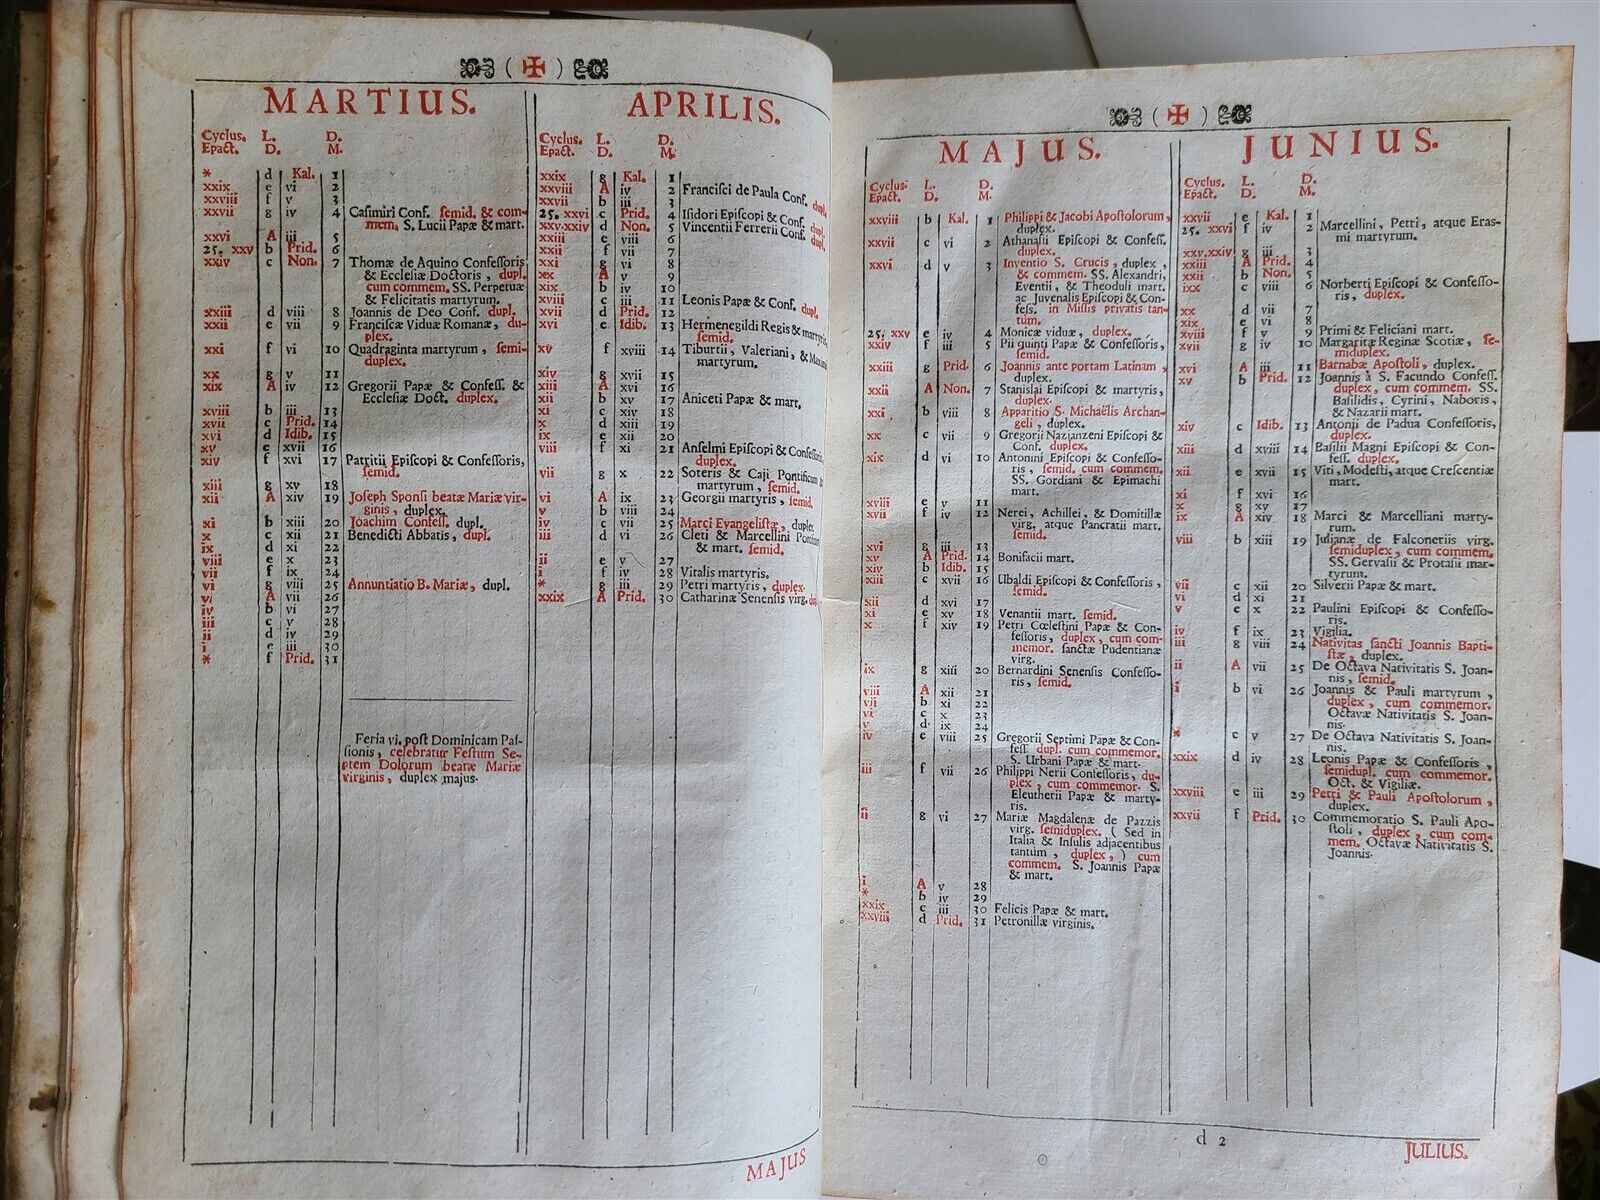 ( ✠ )
MARTIUS.
Cyclus. L. D.
Epact. D. M.
* d Kal. 1
xxix e vi 2
xxviii f v 3
xxvii g iv 4 Casimiri Conf. semid. & com-
mem. S. Lucii Papæ & mart.
xxvi A iii 5
25. xxv b Prid. 6
xxiv c Non. 7 Thomæ de Aquino Confessoris
& Ecclesiæ Doctoris, dupl.
cum commem. SS. Perpetuæ
& Felicitatis martyrum.
xxiii d viii 8 Joannis de Deo Conf. dupl.
xxii e vii 9 Franciscæ Viduæ Romanæ, du-
plex.
xxi f vi 10 Quadraginta martyrum, semi-
duplex.
xx g v 11
xix A iv 12 Gregorii Papæ & Confess. &
Ecclesiæ Doct. duplex.
xviii b iii 13
xvii c Prid. 14
xvi d Idib. 15
xv e xvii 16
xiv f xvi 17 Patritii Episcopi & Confessoris,
semid.
xiii g xv 18
xii A xiv 19 Joseph Sponsi beatæ Mariæ vir-
ginis, duplex.
xi b xiii 20 Joachim Confess. dupl.
x c xii 21 Benedicti Abbatis, dupl.
ix d xi 22
viii e x 23
vii f ix 24
vi g viii 25 Annuntiatio B. Mariæ, dupl.
v A vii 26
iv b vi 27
iii c v 28
ii d iv 29
i e iii 30
* f Prid. 31
Feria vi. post Dominicam Pas-
sionis, celebratur Festum Se-
ptem Dolorum beatæ Mariæ
virginis, duplex majus.
APRILIS.
Cyclus. L. D.
Epact. D. M.
xxix g Kal. 1
xxviii A iv 2 Francisci de Paula Conf. dupl.
xxvii b iii 3
25. xxvi c Prid. 4 Isidori Episcopi & Conf. dupl.
xxv.xxiv d Non. 5 Vincentii Ferrerii Conf. dupl.
xxiii e viii 6
xxii f vii 7
xxi g vi 8
xx A v 9
xix b iv 10
xviii c iii 11 Leonis Papæ & Conf. dupl.
xvii d Prid. 12
xvi e Idib. 13 Hermenegildi Regis & martyris,
semid.
xv f xviii 14 Tiburtii, Valeriani, &
martyrum.
xiv g xvii 15
xiii A xvi 16
xii b xv 17 Aniceti Papæ & mart.
xi c xiv 18
x d xiii 19
ix e xii 20
viii f xi 21 Anselmi Episcopi & Confessoris,
duplex.
vii g x 22 Soteris & Caji Pontificum &
martyrum, semid.
vi A ix 23 Georgii martyris, semid.
v b viii 24
iv c vii 25 Marci Evangelistæ, duplex
iii d vi 26 Cleti & Marcellini
& mart. semid.
ii e v 27
i f iv 28 Vitalis martyris.
* g iii 29 Petri martyris, duplex.
xxix A Prid. 30 Catharinæ Senensis virg. dup
MAJUS
( ✠ )
MAJUS.
Cyclus. L. D.
Epact. D. M.
xxviii b Kal. 1 Philippi & Jacobi Apostolorum,
duplex.
xxvii c vi 2 Athanasii Episcopi & Confess.
duplex.
xxvi d v 3 Inventio S. Crucis, duplex,
& commem. SS. Alexandri,
Eventii, & Theoduli mart.
ac Juvenalis Episcopi & Con-
fess. in Missis privatis tan-
tum.
25. xxv e iv 4 Monicæ viduæ, duplex.
xxiv f iii 5 Pii quinti Papæ & Confessoris,
semid.
xxiii g Prid. 6 Joannis ante portam Latinam,
duplex.
xxii A Non. 7 Stanislai Episcopi & martyris,
duplex.
xxi b viii 8 Apparitio S. Michaëlis Archan-
geli, duplex.
xx c vii 9 Gregorii Nazianzeni Episcopi &
Conf. duplex.
xix d vi 10 Antonini Episcopi & Confesso-
ris, semid. cum commem.
SS. Gordiani & Epimachi
mart.
xviii e v 11
xvii f iv 12 Nerei, Achillei, & Domitillæ
virg. atque Pancratii mart.
semid.
xvi g iii 13
xv A Prid. 14 Bonifacii mart.
xiv b Idib. 15
xiii c xvii 16 Ubaldi Episcopi & Confessoris,
semid.
xii d xvi 17
xi e xv 18 Venantii mart. semid.
x f xiv 19 Petri Cœlestini Papæ & Con-
fessoris, duplex, cum com-
memor. sanctæ Pudentianæ
virg.
ix g xiii 20 Bernardini Senensis Confesso-
ris, semid.
viii A xii 21
vii b xi 22
vi c x 23
v d ix 24
iv e viii 25 Gregorii Septimi Papæ & Con-
fess. dupl. cum commemor.
S. Urbani Papæ & mart.
iii f vii 26 Philippi Nerii Confessoris, du-
plex, cum commemor. S.
Eleutherii Papæ & marty-
ris.
ii g vi 27 Mariæ Magdalenæ de Pazzis
virg. semiduplex. ( Sed in
Italia & Insulis adjacentibus
tantùm, duplex, ) cum
commem. S. Joannis Papæ
& mart.
i A v 28
* b iv 29
xxix c iii 30 Felicis Papæ & mart.
xxviii d Prid. 31 Petronillæ virginis.
JUNIUS.
Cyclus. L. D.
Epact. D. M.
xxvii e Kal. 1
25. xxvi f iv 2 Marcellini, Petri, atque Eras-
mi martyrum.
xxv.xxiv g iii 3
xxiii A Prid. 4
xxii b Non. 5
xxi c viii 6 Norberti Episcopi & Confesso-
ris, duplex.
xx d vii 7
xix e vi 8
xviii f v 9 Primi & Feliciani mart.
xvii g iv 10 Margaritæ Reginæ Scotiæ, se-
miduplex.
xvi A iii 11 Barnabæ Apostoli, duplex.
xv b Prid. 12 Joannis à S. Facundo Confess.
duplex, cum commem. SS.
Basilidis, Cyrini, Naboris,
& Nazarii mart.
xiv c Idib. 13 Antonii de Padua Confessoris,
duplex.
xiii d xviii 14 Basilii Magni Episcopi & Con-
fess. duplex.
xii e xvii 15 Viti, Modesti, atque Crescentiæ
mart.
xi f xvi 16
x g xv 17
ix A xiv 18 Marci & Marcelliani marty-
rum.
viii b xiii 19 Julianæ de Falconeriis virg.
semiduplex, cum commem.
SS. Gervasii & Protasii mar-
tyrum.
vii c xii 20 Silverii Papæ & mart.
vi d xi 21
v e x 22 Paulini Episcopi & Confesso-
ris.
iv f ix 23 Vigilia.
iii g viii 24 Nativitas sancti Joannis Bapti-
stæ, duplex.
ii A vii 25 De Octava Nativitatis S. Joan-
nis, semid.
i b vi 26 Joannis & Pauli martyrum,
duplex, cum commemor.
Octavæ Nativitatis S. Joan-
nis.
* c v 27 De Octava Nativitatis S. Joan-
nis.
xxix d iv 28 Leonis Papæ & Confessoris,
semidupl. cum commemor.
Oct. & Vigiliæ.
xxviii e iii 29 Petri & Pauli Apostolorum,
duplex.
xxvii f Prid. 30 Commemoratio S. Pauli Apo-
stoli, duplex, cum com-
mem. Octavæ Nativitatis S.
Joannis.
d 2
JULIUS.